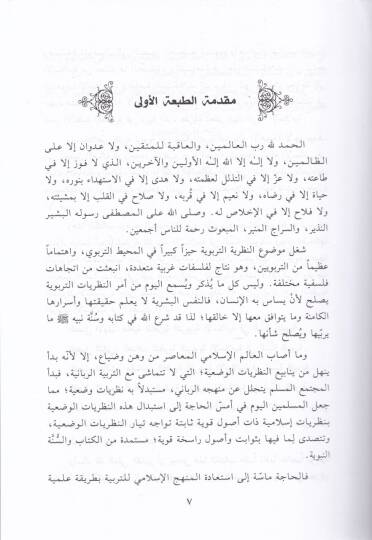 مقدمة الطبعة الأولى
الحمد لله رب العالمين، والعاقبة للمتقين، ولا عدوان إلا على
الظالمين، ولا إله إلا الله إله الأولين والآخرين، الذي لا فوز إلا في
طاعته، ولا عزّ إلا في التذلل لعظمته، ولا هدى إلا في الاستهداء بنوره، ولا
حياة إلا في رضاه، ولا نعيم إلا في قُربه، ولا صلاح في القلب إلا بمشيئته،
ولا فلاح إلا في الإخلاص له. وصلى الله على المصطفى رسوله البشير
النذير، والسراج المنير، المبعوث رحمة للناس أجمعين.
شغل موضوع النظرية التربوية حيزاً كبيراً في المحيط التربوي، واهتماماً
عظيماً من التربويين، وهو نتاج لفلسفات غربية متعددة، انبعثت من اتجاهات
فلسفية مختلفة. وليس كل ما يُذكر ويُسمع اليوم من أمر النظريات التربوية
يصلح لأنْ يساس به الإنسان، فالنفس البشرية لا يعلم حقيقتها وأسرارها
الكامنة وما يتوافق معها إلا خالقها؛ لذا قد شرع الله في كتابه وسُنَّة نبيه ﷺ ما
يربّيها ويُصلح شأنها.
وما أصاب العالم الإسلامي المعاصر من وهن وضياع، إلا لأنّه بدأ
ينهل من ينابيع النظريات الوضعية؛ التي لا تتماشى مع التربية الربانية، فبدأ
المجتمع المسلم يتحلل عن منهجه الرباني، مستبدلاً به نظريات وضعية؛ مما
جعل المسلمين اليوم في أمسّ الحاجة إلى استبدال هذه النظريات الوضعية
بنظريات إسلامية ذات أصول قوية ثابتة تواجه تيار النظريات الوضعية،
وتتصدى لِما فيها بثوابت وأصول راسخة قوية؛ مستمدة من الكتاب والسُّنَّة
النبوية.
فالحاجة ماسّة إلى استعادة المنهج الإسلامي للتربية بطريقة علمية
٧